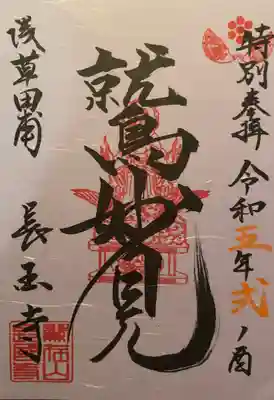 特別奉拝 令和五年弐ノ酉
鷲妙見
浅草田甫 長国寺